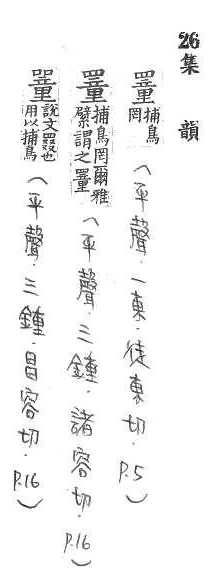 26集 韻
罿捕鳥罔(平聲.一東.徒東切.P.5)
罿捕鳥罔爾雅繴謂之罿(平聲.三鍾.諸容切.P.16)
罿說文罬也用以捕鳥(平聲.三鍾.昌容切.P.16)